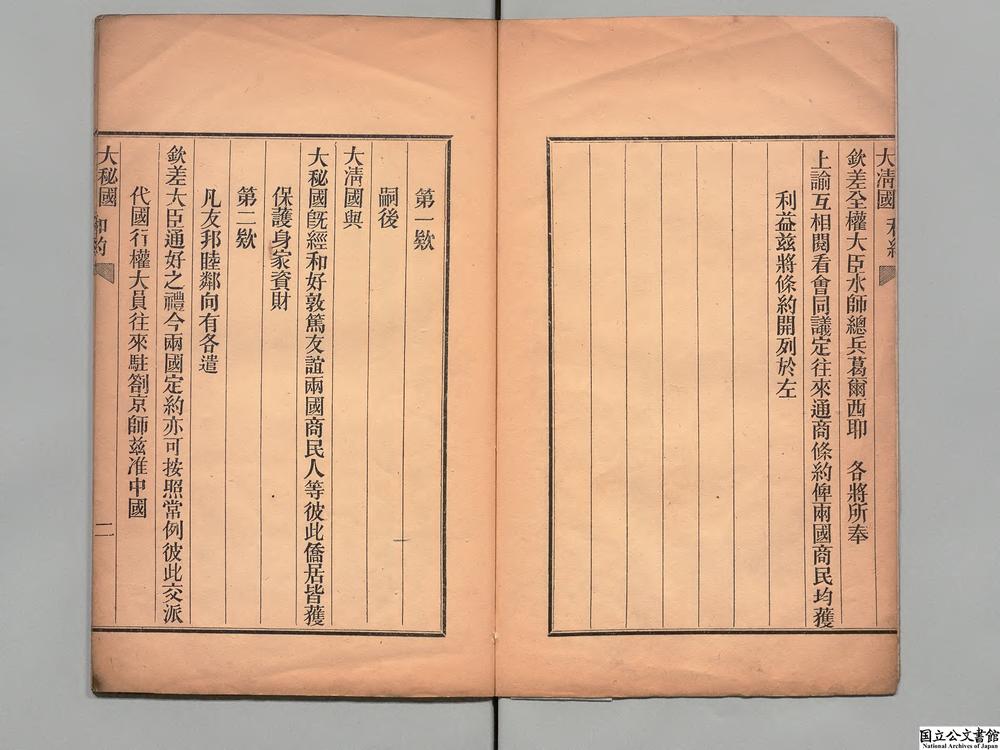 大清國 和約
欽差全權大臣水師總兵葛爾西耶 各將所奉
上諭互相閱看會同議定往來通商條約俾兩國商民均獲
利益兹將條約開列於左
第一欵
嗣後
大清國與
大秘國旣經和好敦篤友誼兩國商民人等彼此僑居皆獲
保護身家資財
第二欵
凡友邦睦鄰向有各遣
欽差大臣通好之禮今兩國定約亦可按照常例彼此交派
代國行權大員往來駐劄京師兹准中國
大秘國 和約 二
国立公文書館
National Archives of Japan